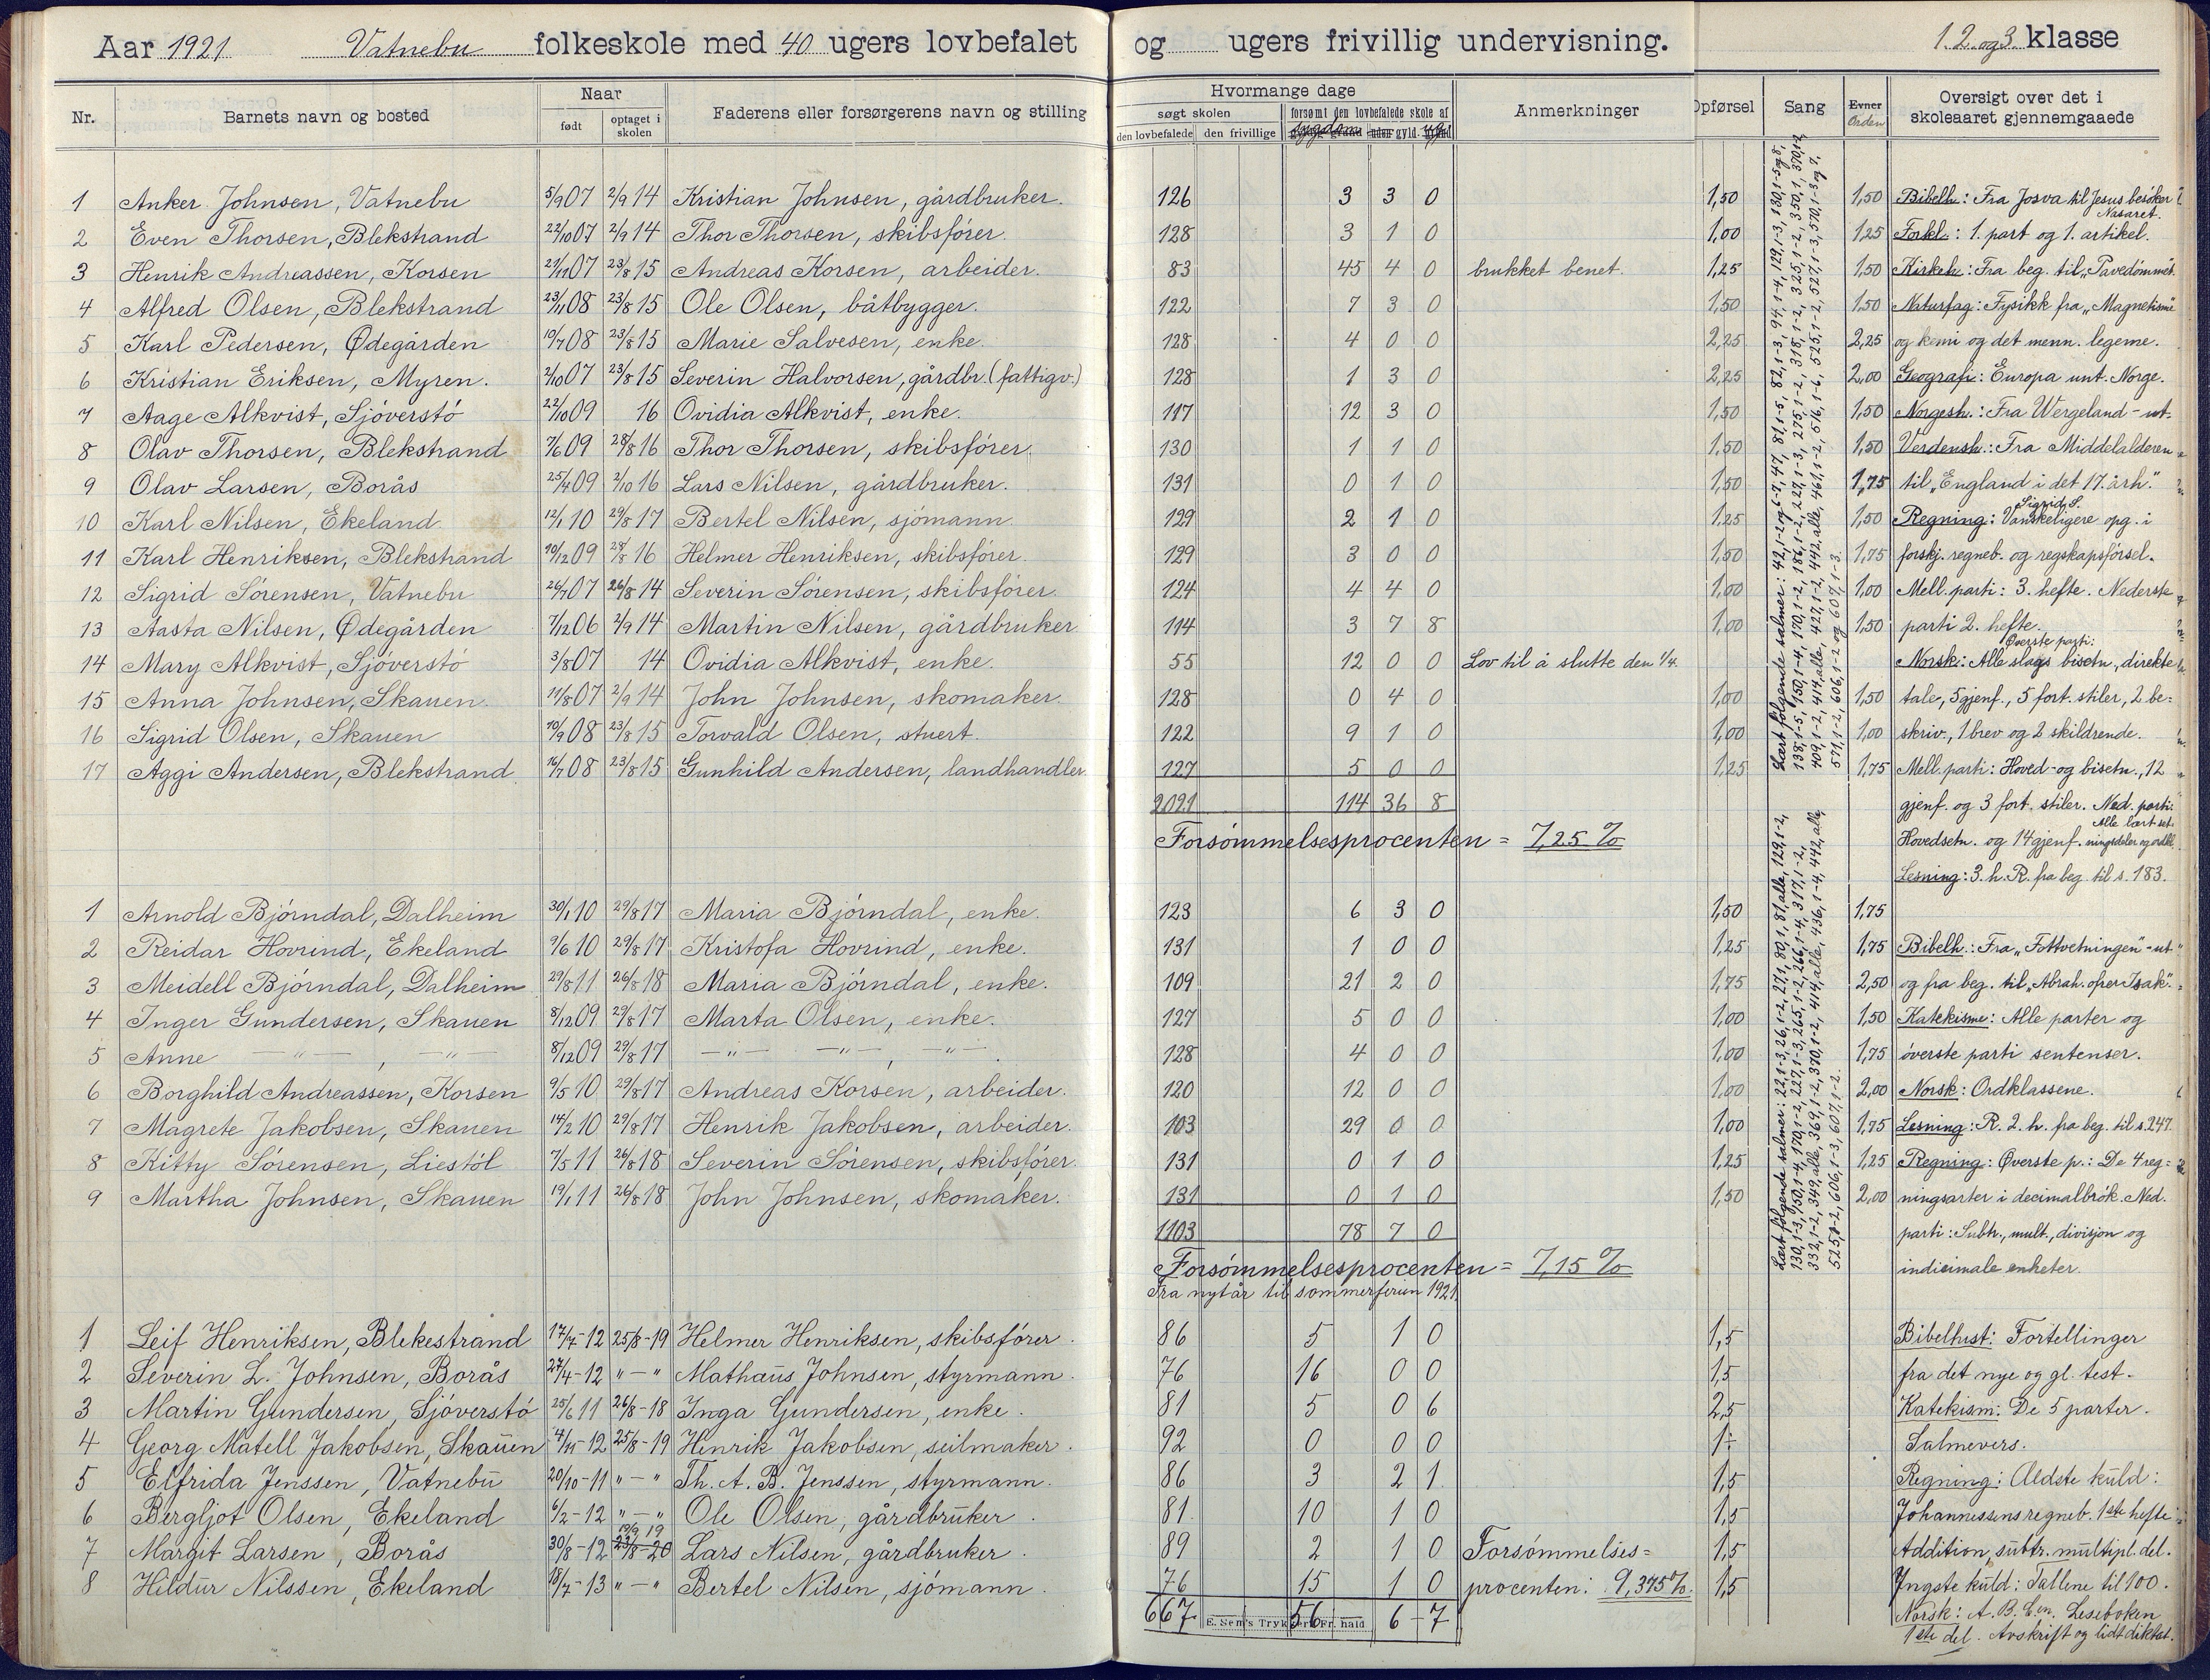 Aar 1921 Vatnebu folkeskole med 40 ugers lovbefalet og ugers frivillig undervisning. 1. 2. og 3. klasse
Nr. Barnets navn og bosted Naar født optaget i skolen Faderens eller forsørgerens navn og stilling Hvormange dage søgt skolen den lovbefalede den frivillige forsømt den lovbefalede skole af sygdom gyld. ugyld Anmerkninger Opførsel Sang Evner Orden Oversigt over det i skoleaaret gjennemgaaede
1 Anker Johnsen, Vatnebu 5/9 07 2/9 14 Kristian Johnsen, gårdbruker. 126 3 3 0 1,50 1,50 Bibelh.: Fra Josva til Jesus besøker Nasaret.
2 Even Thorsen, Blekstrand 22/10 07 2/9 14 Thor Thorsen, skibsfører. 128 3 1 0 1,00 1,25 Forkl.: 1. part og 1. artikel.
3 Henrik Andreassen, Korsen 21/11 07 23/8 15 Andreas Korsen, arbeider. 83 45 4 0 brukket benet. 1,25 1,50 Kirkeh.: Fra beg. til „Pavedømmet"
4 Alfred Olsen, Blekstrand 23/11 08 23/8 15 Ole Olsen, båtbygger. 122 7 3 0 1,50 1,50 Naturfag: Fysikk fra „Magnetisme"
5 Karl Pedersen, Ødegården 10/7 08 23/8 15 Marie Salvesen, enke. 128 4 0 0 2,25 2,25 og kemi og det menn. legeme.
6 Kristian Eriksen, Myren. 2/10 07 23/8 15 Severin Halvorsen, gårdbr. (fattigv.) 128 1 3 0 2,25 2,00 Geografi: Europa unt. Norge.
7 Aage Alkvist, Sjøverstø 22/10 09 16 Ovidia Alkvist, enke. 117 12 3 0 1,50 1,50 Norgesh.: Fra Wergeland - ut.
8 Olav Thorsen, Blekstrand 7/6 09 28/8 16 Thor Thorsen, skibsfører. 130 1 1 0 1,50 1,50 Verdensh.: Fra Middelalderen
9 Olav Larsen, Borås 25/4 09 2/10 16 Lars Nilsen, gårdbruker. 131 0 1 0 1,50 1,75 til „England i det 17. årh."
10 Karl Nilsen, Ekeland 12/1 10 29/8 17 Bertel Nilsen, sjømann. 129 2 1 0 1,25 1,50 Regning: Sigrid S. Vanskeligere opg. i
11 Karl Henriksen, Blekstrand 10/12 09 28/8 16 Helmer Henriksen, skibsfører. 129 3 0 0 1,50 1,75 forskj. regneb. og regskapsførsel.
12 Sigrid Sørensen, Vatnebu 26/7 07 26/8 14 Severin Sørensen, skibsfører. 124 4 4 0 1,00 1,00 Mell. parti: 3. hefte. Nederste
13 Aasta Nilsen, Ødegården 7/12 06 2/9 14 Martin Nilsen, gårdbruker 114 3 7 8 1,00 1,50 parti 2. hefte.
14 Mary Alkvist, Sjøverstø 3/8 07 14 Ovidia Alkvist, enke. 55 12 0 0 Lov til å slutte den 1/4. Norsk: Øverste parti: Alle slags bisetn., direkte
15 Anna Johnsen, Skauen. 11/8 07 2/9 14 John Johnsen, skomaker. 128 0 4 0 1,00 1,50 tale, 5 gjenf., 5 fort. stiler, 2 be=
16 Sigrid Olsen, Skauen 10/9 08 23/8 15 Torvald Olsen, stuert. 122 9 1 0 1,00 1,00 skriv., 1 brev og 2 skildrende.
17 Aggi Andersen, Blekstrand 16/7 08 23/8 15 Gunhild Andersen, landhandler 127 5 0 0 1,25 1,75 Mell. parti: Hoved- og bisetn., 12
2091 114 36 8 gjenf. og 3 fort. stiler. Ned. parti:
Forsømmelsesprocenten = 7,25 % Hovedsetn. og 14 gjenf. Alle lært setningsdeler og ordkl.
Lesning: 3. h. R. fra beg. til s. 183.
Lært følgende salmer:
1 Arnold Bjørndal, Dalheim 30/1 10 29/8 17 Maria Bjørndal, enke. 123 6 3 0 1,50 1,75
2 Reidar Hovrind, Ekeland 9/6 10 29/8 17 Kristofa Hovrind, enke. 131 1 0 0 1,25 1,75 Bibelh.: Fra „Fottvetningen" - ut
3 Meidell Bjørndal, Dalheim 29/8 11 26/8 18 Maria Bjørndal, enke. 109 21 2 0 1,75 2,50 og fra beg. til „Abrah. ofrer Isak".
4 Inger Gundersen, Skauen 8/12 09 29/8 17 Marta Olsen, enke. 127 5 0 0 1,00 1,50 Katekisme: Alle parter og
5 Anne — " — , — " — 8/12 09 29/8 17 — " — — " —, — " —. 128 4 0 0 1,00 1,75 øverste parti sentenser.
6 Borghild Andreassen, Korsen 9/5 10 29/8 17 Andreas Korsen, arbeider. 120 12 0 0 1,00 2,00 Norsk: Ordklassene.
7 Magrete Jakobsen, Skauen 14/2 10 29/8 17 Henrik Jakobsen, arbeider. 103 29 0 0 1,00 1,75 Lesning: R. 2. h. fra beg. til s. 247.
8 Kitty Sørensen, Liestøl 7/5 11 26/8 18 Severin Sørensen, skibsfører. 131 0 1 0 1,25 1,25 Regning: Øverste p.: De 4 reg=
9 Martha Johnsen, Skauen 19/1 11 26/8 18 John Johnsen, skomaker. 131 0 1 0 1,50 2,00 ningsarter i decimalbrøk. Ned.
1103 78 7 0 parti: Subtr., mult., divisjon og
Forsømmelsesprocenten = 7,15 % indicimale enheter.
Lært følgende salmer:
Fra nytår til sommerferien 1921.
1 Leif Henriksen, Blekestrand 17/7-12 25/8-19 Helmer Henriksen, skibsfører. 86 5 1 0 1,5 Bibelhist: Fortellinger
2 Severin L. Johnsen, Borås 27/4-12 " — " Mathæus Johnsen, styrmann. 76 16 0 0 1,5 fra det nye og gl. test.
3 Martin Gundersen, Sjøverstø 25/6 11 26/8-18 Inga Gundersen, enke. 81 5 0 6 2,5 Katekism: De 5 parter.
4 Georg Matell Jakobsen, Skauen 4/11-12 25/8-19 Henrik Jakobsen, seilmaker. 92 0 0 0 1÷ Salmevers.
5 Elfrida Jenssen, Vatnebu 20/10-11 " — " Th. A. B. Jenssen, styrmann. 86 3 2 1 1,5 Regning: Ældste kuld:
6 Bergljot Olsen, Ekeland 6/2-12 " — " Ole Olsen, gårdbruker. 81 10 1 0 1,5 Johannessens regneb. 1ste hefte
7 Margit Larsen, Borås 30/8-12 19/9 19 23/8-20 Lars Nilsen, gårdbruker. 89 2 1 0 Forsømmelses= 1,5 Addition, subtr. multipl. del.
8 Hildur Nilssen, Ekeland 18/7-13 " — " Bertel Nilsen, sjømann. 76 15 1 0 procenten: 9,375%. 1,5 Yngste kuld: Tallene til 100.
667 56 6 - 7 Norsk: A. B. C.en. Leseboken
E. Sem's Trykkeri Fr. hald 1ste del. Avskrift og lidt diktat.